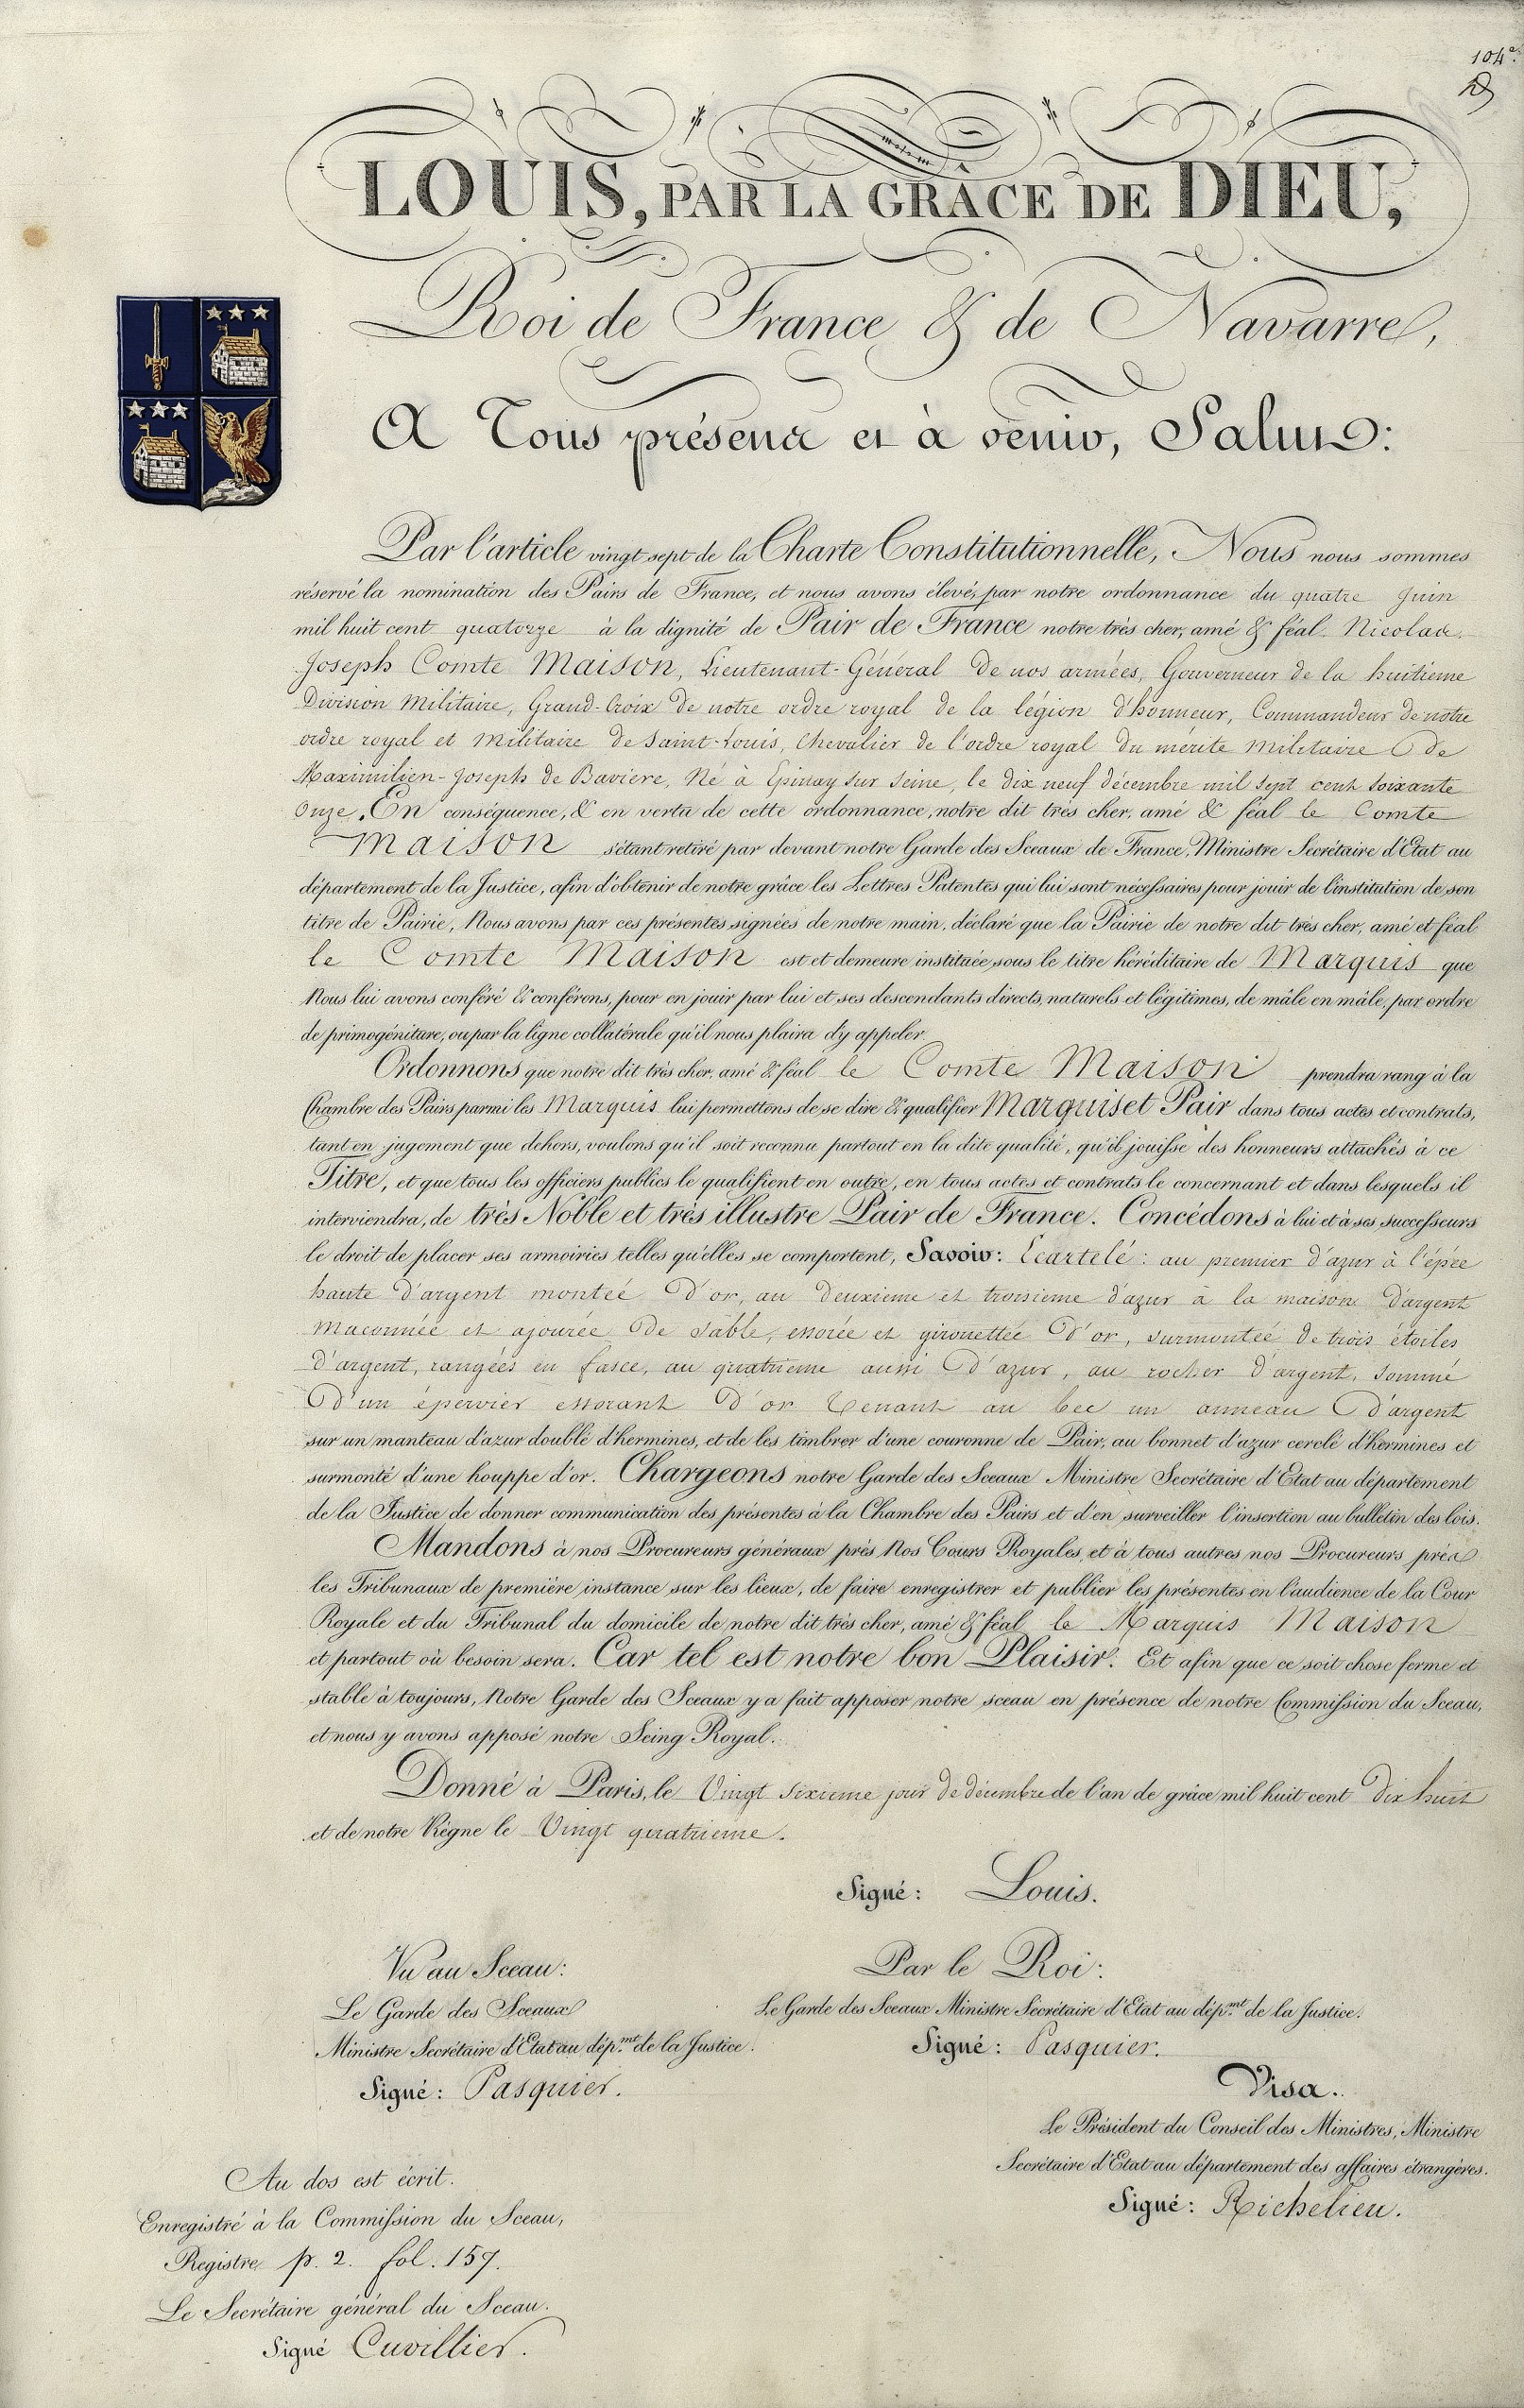 104e.
LOUIS, PAR LA GRÂCE DE DIEU,
Roi de France & de Navarre,
A Tous présens et à venir, Salut:
Par l'article vingt sept de la Charte Constitutionnelle, Nous nous sommes
réservé la nomination des Pairs de France, et nous avons élevé, par notre ordonnance du quatre Juin
mil huit cent quatorze à la dignité de Pair de France notre très cher, amé & féal Nicolas
Joseph Comte Maison, Lieutenant-Général de nos armées, Gouverneur de la huitieme
Division Militaire, Grand-Croix de notre ordre royal de la légion d'honneur, Commandeur de notre
ordre royal et Militaire de Saint-Louis, Chevalier de l'ordre royal du mérite Militaire de
Maximilien-Joseph de Baviere, Né à Epinay sur Seine, le dix neuf décembre mil sept cent soixante
Onze. En conséquence, & en vertu de cette ordonnance, notre dit très cher, amé & féal le Comte
Maison s'étant retiré par devant notre Garde des Sceaux de France, Ministre Secrétaire d'Etat au
département de la Justice, afin d'obtenir de notre grâce les Lettres Patentes qui lui sont nécessaires pour jouir de l'institution de son
titre de Pairie, Nous avons par ces présentes signées de notre main, déclaré que la Pairie de notre dit très cher, amé et féal
le Comte Maison est et demeure instituée sous le titre héréditaire de Marquis que
Nous lui avons conféré & conférons, pour en jouir par lui et ses descendants directs, naturels et légitimes, de mâle en mâle, par ordre
de primogéniture, ou par la ligne collatérale qu'il nous plaira d'y appeler.
Ordonnons que notre dit très cher, amé & féal le Comte Maison prendra rang à la
Chambre des Pairs parmi les Marquis lui permettons de se dire & qualifier Marquis et Pair dans tous actes et contrats,
tant en jugement que dehors, voulons qu'il soit reconnu partout en la dite qualité, qu'il jouisse des honneurs attachés à ce
Titre, et que tous les officiers publics le qualifient en outre, en tous actes et contrats le concernant et dans lesquels il
interviendra, de très Noble et très illustre Pair de France. Concédons à lui et à ses successeurs
le droit de placer ses armoiries telles qu'elles se comportent, Savoir: Ecartelé: au premier d'azur à l'épée
haute d'argent montée d'or, au deuxieme et troisieme d'azur à la maison d'argent
maconnée et ajourée de sable, essorée et girouettée d'or, surmontée de trois étoiles
d'argent, rangées en fasce, au quatrieme aussi d'azur, au rocher d'argent, sommé
d'un épervier essorant d'or tenant au bec un anneau d'argent
sur un manteau d'azur doublé d'hermines, et de les timbrer d'une couronne de Pair, au bonnet d'azur cerclé d'hermines et
surmonté d'une houppe d'or. Chargeons notre Garde des Sceaux Ministre Secrétaire d'Etat au département
de la Justice de donner communication des présentes à la Chambre des Pairs et d'en surveiller l'insertion au bulletin des lois.
Mandons à nos Procureurs généraux près Nos Cours Royales, et à tous autres nos Procureurs près
les Tribunaux de première instance sur les lieux, de faire enregistrer et publier les présentes en l'audience de la Cour
Royale et du Tribunal du domicile de notre dit très cher, amé & féal le Marquis Maison
et partout où besoin sera. Car tel est notre bon Plaisir. Et afin que ce soit chose ferme et
stable à toujours, Notre Garde des Sceaux y a fait apposer notre sceau en présence de notre Commission du Sceau,
et nous y avons apposé notre Seing Royal.
Donné à Paris, le Vingt sixieme jour de décembre de l'an de grâce mil huit cent dix huit
et de notre Règne le Vingt quatrieme.
Signé: Louis.
Vu au Sceau:
Le Garde des Sceaux
Ministre Secrétaire d'Etat au dép.mt de la Justice.
Signé: Pasquier.
Par le Roi:
Le Garde des Sceaux Ministre Secrétaire d'Etat au dép.mt de la Justice.
Signé: Pasquier.
Visa.
Le Président du Conseil des Ministres, Ministre
Secrétaire d'Etat au département des affaires étrangères.
Signé: Richelieu.
Au dos est écrit.
Enregistré à la Commission du Sceau,
Registre p. 2. fol. 157.
Le Secrétaire général du Sceau.
Signé Cuvillier.